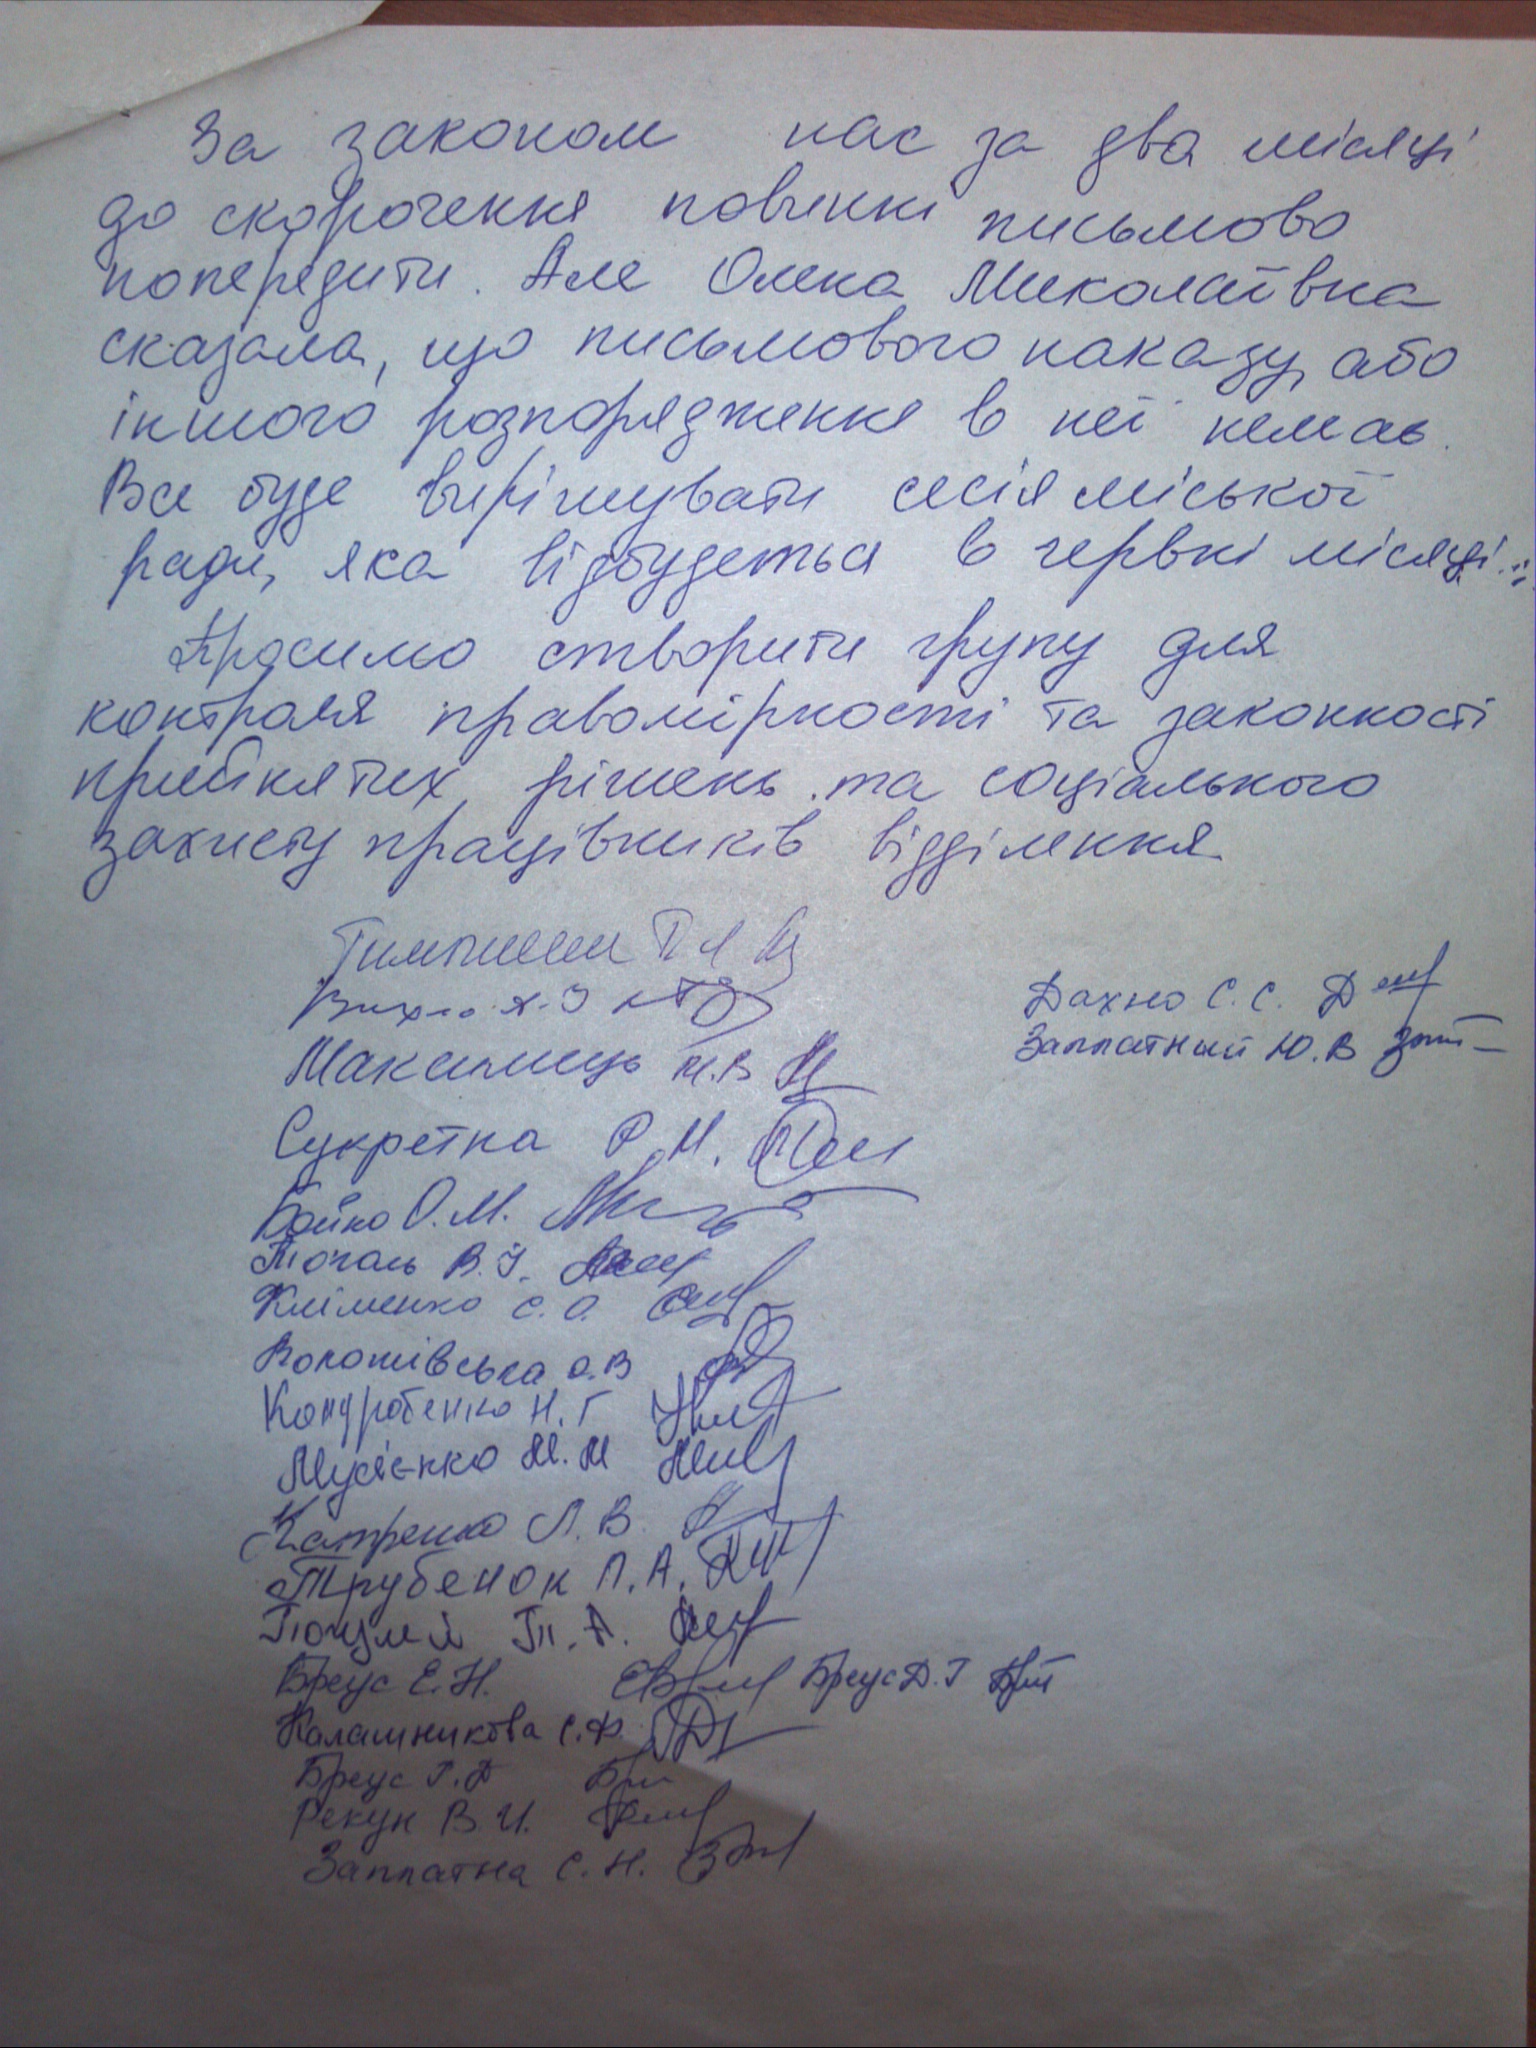 За законом нас за два місяці
до скорочення повинні письмово
попередити. Але Олена Миколаївна
сказала, що письмового наказу, або
іншого розпорядження в неї немає.
Все буде вирішувати сесія міської
ради, яка відбудеться в червні місяці...
Просимо створити групу для
контроля правомірності та законності
прийнятих рішень та соціального
захисту працівників відділення
Дахно С. С.
Заплатный Ю. В
Максимець М. В
Сукретна Р. М.
Бойко О. М.
В. І.
Кліменко С. О.
О. В
Н. Г
Мусієнко М. М
Л. В.
Трубенок Л. А.
Т. А.
Бреус Е. Н. Бреус Д. Г
Калашникова С. Ф.
Бреус Г. Д
Рекун В. И.
Заплатна С. Н.